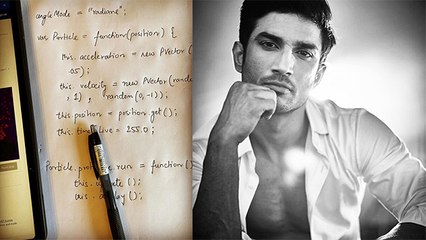 angleMode = "radians";
var Particle = function(position) {
this.acceleration = new PVector(
.05);
this.velocity = new PVector(random
, 1), random(0, -1));
this.position = position.get();
255.0;
};
= function()